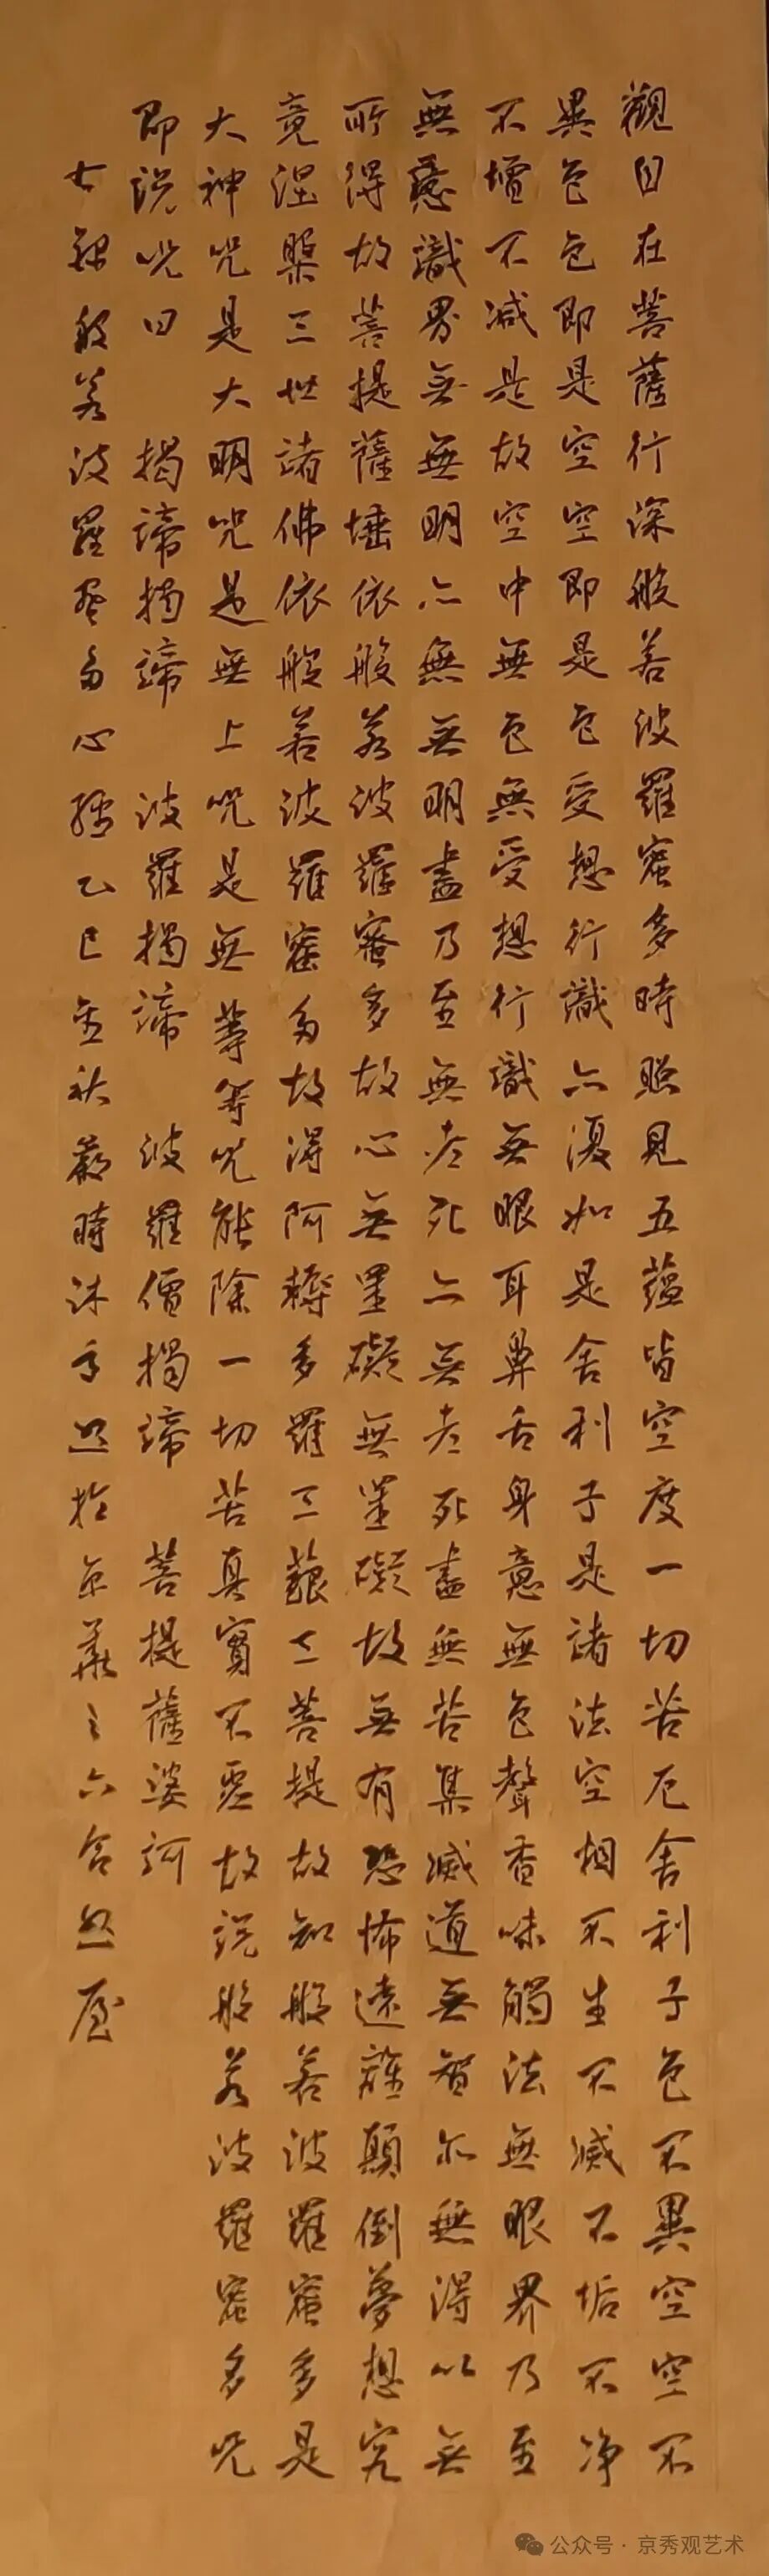 觀自在菩薩行深般若波羅蜜多時照見五蘊皆空度一切苦厄舍利子色不異空空不
異色色即是空空即是色受想行識亦復如是舍利子是諸法空相不生不滅不垢不净
不增不减是故空中無色無受想行識無眼耳鼻舌身意無色聲香味觸法無眼界乃至
無意識界無無明亦無無明盡乃至無老死亦無老死盡無苦集滅道無智亦無得以無
所得故菩提薩埵依般若波羅蜜多故心無罣礙無罣礙故無有恐怖遠離顛倒夢想究
竟涅槃三世諸佛依般若波羅蜜多故得阿耨多羅三藐三菩提故知般若波羅蜜多是
大神咒是大明咒是無上咒是無等等咒能除一切苦真實不虛故說般若波羅蜜多咒
即說咒曰 揭諦揭諦 波羅揭諦 波羅僧揭諦 菩提薩婆訶
右録般若波羅蜜多心經乙巳金秋時沐手於京華之六合屋
公众号·京秀观艺术